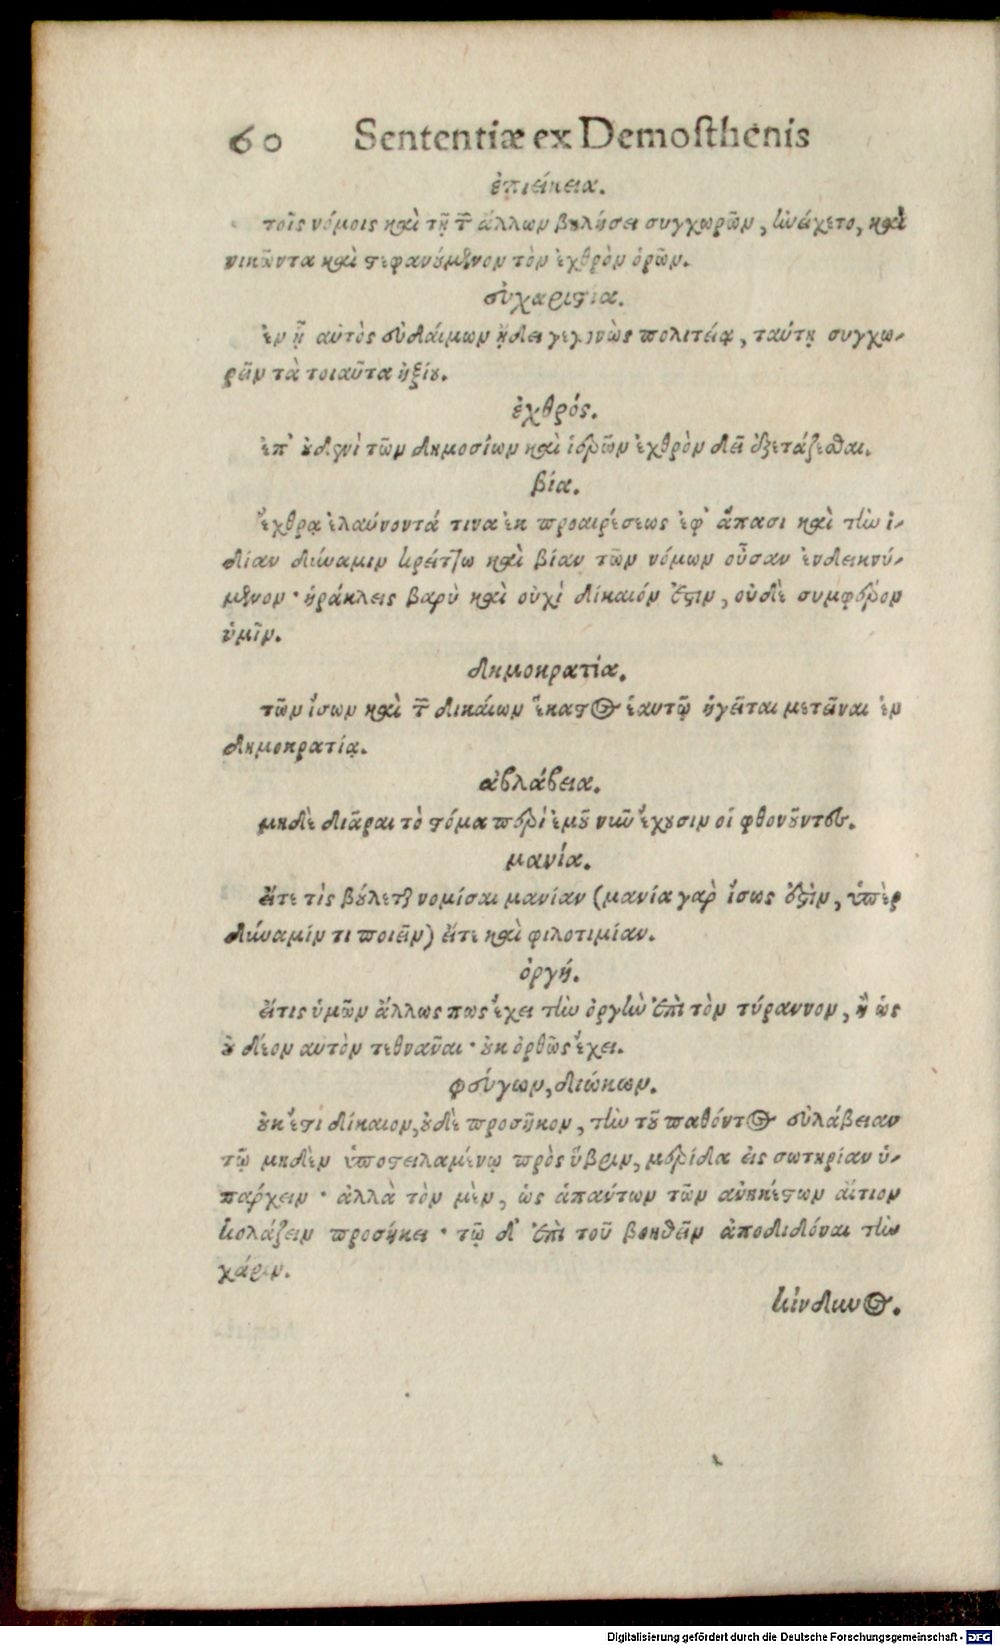 60 Sententiæ ex Demosthenis
ἐπιείκεια.
τοῖς νόμοις καὶ τῇ τῶν ἄλλων βουλήσει συγχωρῶν, ἠνείχετο, καὶ
νικῶντα καὶ στεφανούμενον τὸν ἐχθρὸν ὁρῶν.
εὐχαριστία.
ἐν ᾗ αὐτὸς εὐδαίμων ᾔδει γεγονὼς πολιτείᾳ, ταύτῃ συγχω-
ρεῖν τὰ τοιαῦτα ἠξίου.
ἐχθρός.
ἐπ' οὐδενὶ τῶν δημοσίων καὶ ἱερῶν ἐχθρὸν δεῖ ἐξετάζεσθαι.
βία.
ἔχθρᾳ ἐλαύνοντά τινα ἐκ προαιρέσεως ἐφ' ἅπασι καὶ τὴν ἰ-
δίαν δύναμιν κρείττω καὶ βίαν τῶν νόμων οὖσαν ἐνδεικνύ-
μενον· ἡράκλεις βαρὺ καὶ οὐχὶ δίκαιόν ἐστιν, οὐδὲ συμφέρον
ὑμῖν.
δημοκρατία.
τῶν ἴσων καὶ τῶν δικαίων ἕκαστος ἑαυτῷ ἡγεῖται μετεῖναι ἐν
δημοκρατίᾳ.
ἀβλάβεια.
μηδὲ διᾶραι τὸ στόμα περὶ ἐμοῦ νῦν ἔχουσιν οἱ φθονοῦντες.
μανία.
εἴτε τὶς βούλεται νομίσαι μανίαν (μανία γὰρ ἴσως ἐστὶν, ὑπὲρ
δύναμίν τι ποιεῖν) εἴτε καὶ φιλοτιμίαν.
ὀργή.
εἴτις ὑμῶν ἄλλως πως ἔχει τὴν ὀργὴν ἐπὶ τὸν τύραννον, ἢ ὡς
οὐ δέον αυτὸν τεθναναι· οὐκ ὀρθῶς ἔχει.
φεύγων, διώκων.
οὐκ ἔστι δίκαιον, οὐδὲ προσῆκον, τὴν τοῦ παθόντος εὐλάβειαν
τῷ μηδὲν ὑποστειλαμένῳ πρὸς ὕβριν, μερίδα εἰς σωτηρίαν ὑ-
πάρχειν· ἀλλὰ τὸν μὲν, ὡς ἁπάντων τῶν ἀνηκέστων αἴτιον
κολάζειν προσήκει· τῷ δ' ἐπὶ τοῦ βοηθεῖν ἀποδιδόναι τὴν
χάριν.
κίνδυνος.
Digitalisierung gefördert durch die Deutsche Forschungsgemeinschaft - DFG